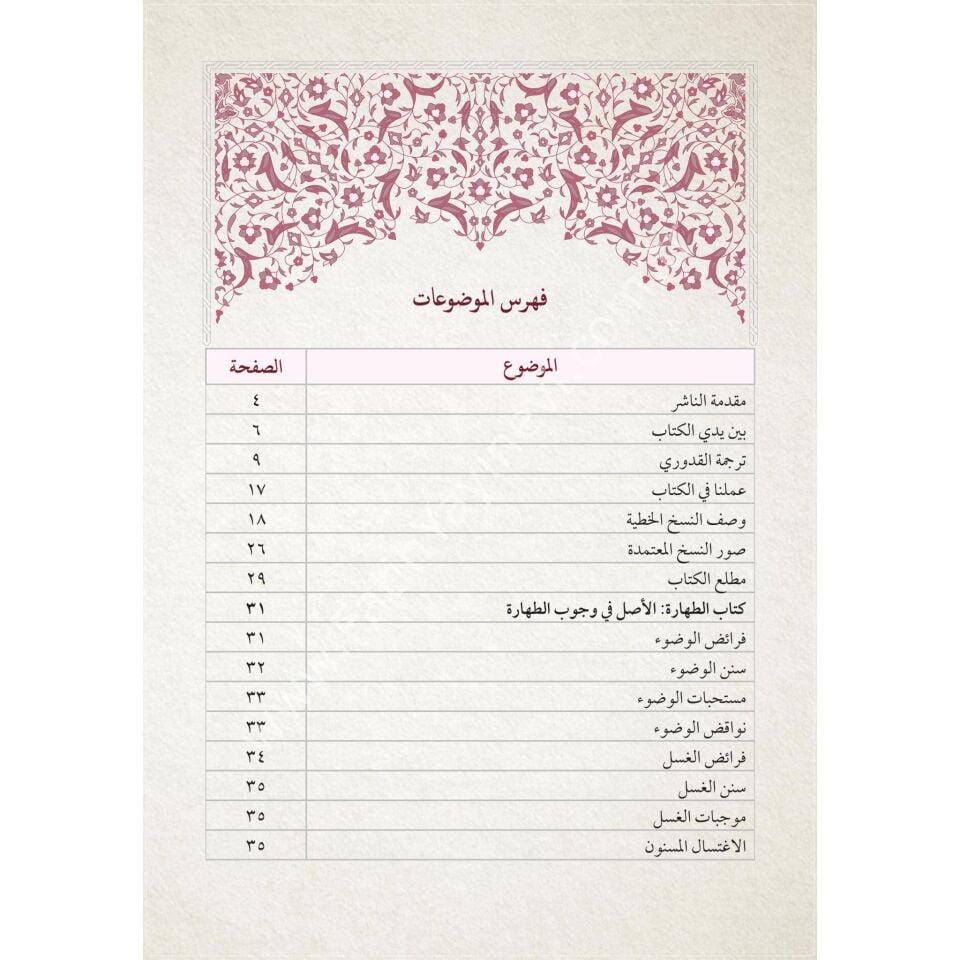 فهرس الموضوعات
الموضوع الصفحة
مقدمة الناشر ٤
بين يدي الكتاب ٦
ترجمة القدوري ٩
عملنا في الكتاب ١٧
وصف النسخ الخطية ١٨
صور النسخ المعتمدة ٢٦
مطلع الكتاب ٢٩
كتاب الطهارة: الأصل في وجوب الطهارة ٣١
فرائض الوضوء ٣١
سنن الوضوء ٣٢
مستحبات الوضوء ٣٣
نواقض الوضوء ٣٣
فرائض الغسل ٣٤
سنن الغسل ٣٥
موجبات الغسل ٣٥
الاغتسال المسنون ٣٥